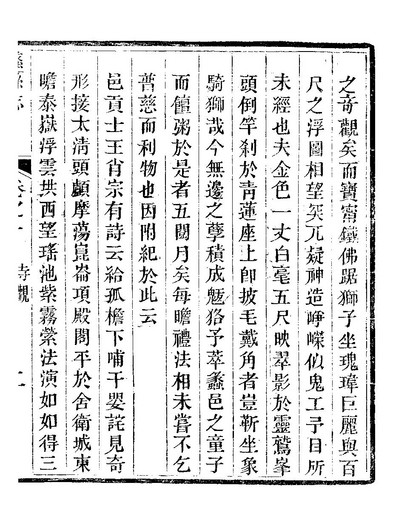 之奇觀矣而寶甯鐵佛踞獅子坐瑰瑋巨麗與百
尺之浮圖相望矣兀凝神造崢嶸似鬼工予目所
未經也夫金色一丈白毫五尺映翠影於靈鷲峯
頭倒竿刹於靑蓮座上卽披毛戴角者豈靳坐象
騎獅哉今無邊之孽積成魃狢予萃蠡邑之童子
而饘粥於是者五閱月矣每瞻禮法相未嘗不乞
普慈而利物也因附紀於此云
邑貢士王肖宗有詩云給孤檐下哺千嬰詫見奇
形接太淸頭顱摩蕩崑崙項殿閣平於舍衛城東
瞻泰嶽浮雲拱西望瑤池紫霧縈法演如如得三
寺觀